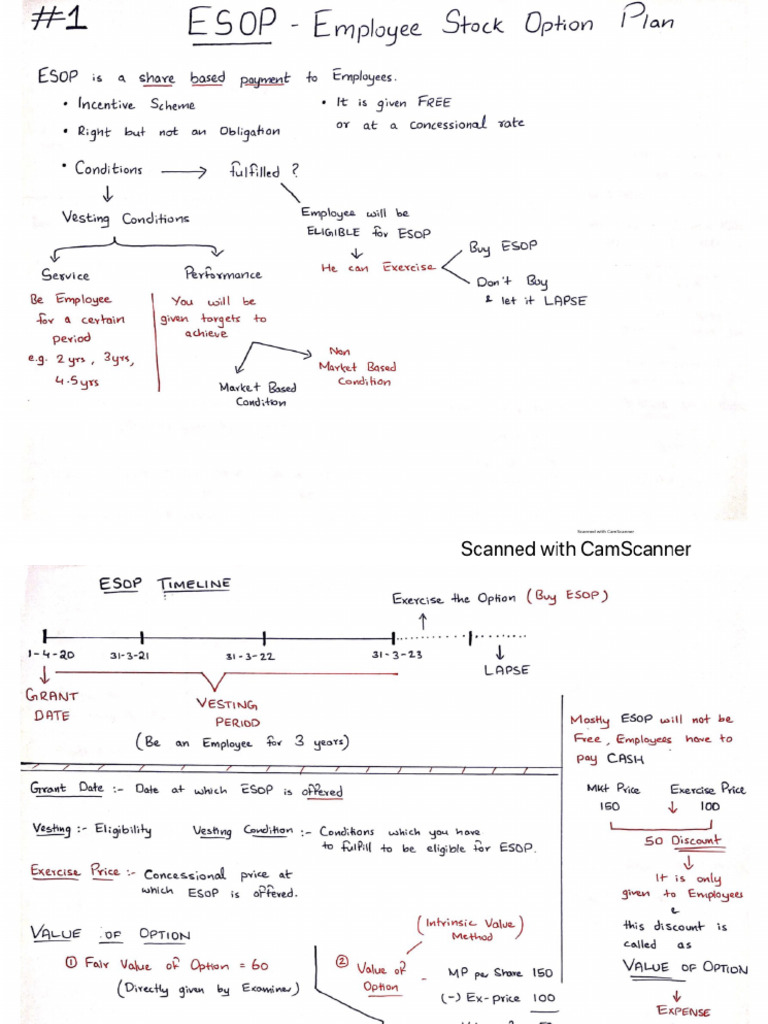 #1 ESOP - Employee Stock Option Plan
ESOP is a share based payment to Employees.
• Incentive Scheme
• It is given FREE
or at a concessional rate
• Right but not an Obligation
• Conditions → fulfilled ?
Vesting Conditions
Employee will be
ELIGIBLE for ESOP
He can Exercise
Buy ESOP
Don't Buy
& let it LAPSE
Service
Be Employee
for a certain
period
e.g. 2 yrs, 3yrs,
4.5yrs
Performance
You will be
given targets to
achieve
Market Based
Condition
Non
Market Based
Condition
Scanned with CamScanner
Scanned with CamScanner
ESOP TIMELINE
Exercise the Option (Buy ESOP)
1-4-20 31-3-21 31-3-22 31-3-23
LAPSE
GRANT
DATE
VESTING
PERIOD
(Be an Employee for 3 years)
Grant Date :- Date at which ESOP is offered
Vesting :- Eligibility
Vesting Condition :- Conditions which you have
to fulfill to be eligible for ESOP.
Exercise Price :- Concessional price at
which ESOP is offered.
VALUE OF OPTION
① Fair Value of Option = 60
(Directly given by Examiner)
(Intrinsic Value)
Method
② Value of
Option
- MP per Share 150
(-) Ex-price 100
Mostly ESOP will not be
Free, Employees have to
pay CASH
Mkt Price Exercise Price
150 100
50 Discount
It is only
given to Employees
&
this discount is
called as
VALUE OF OPTION
EXPENSE